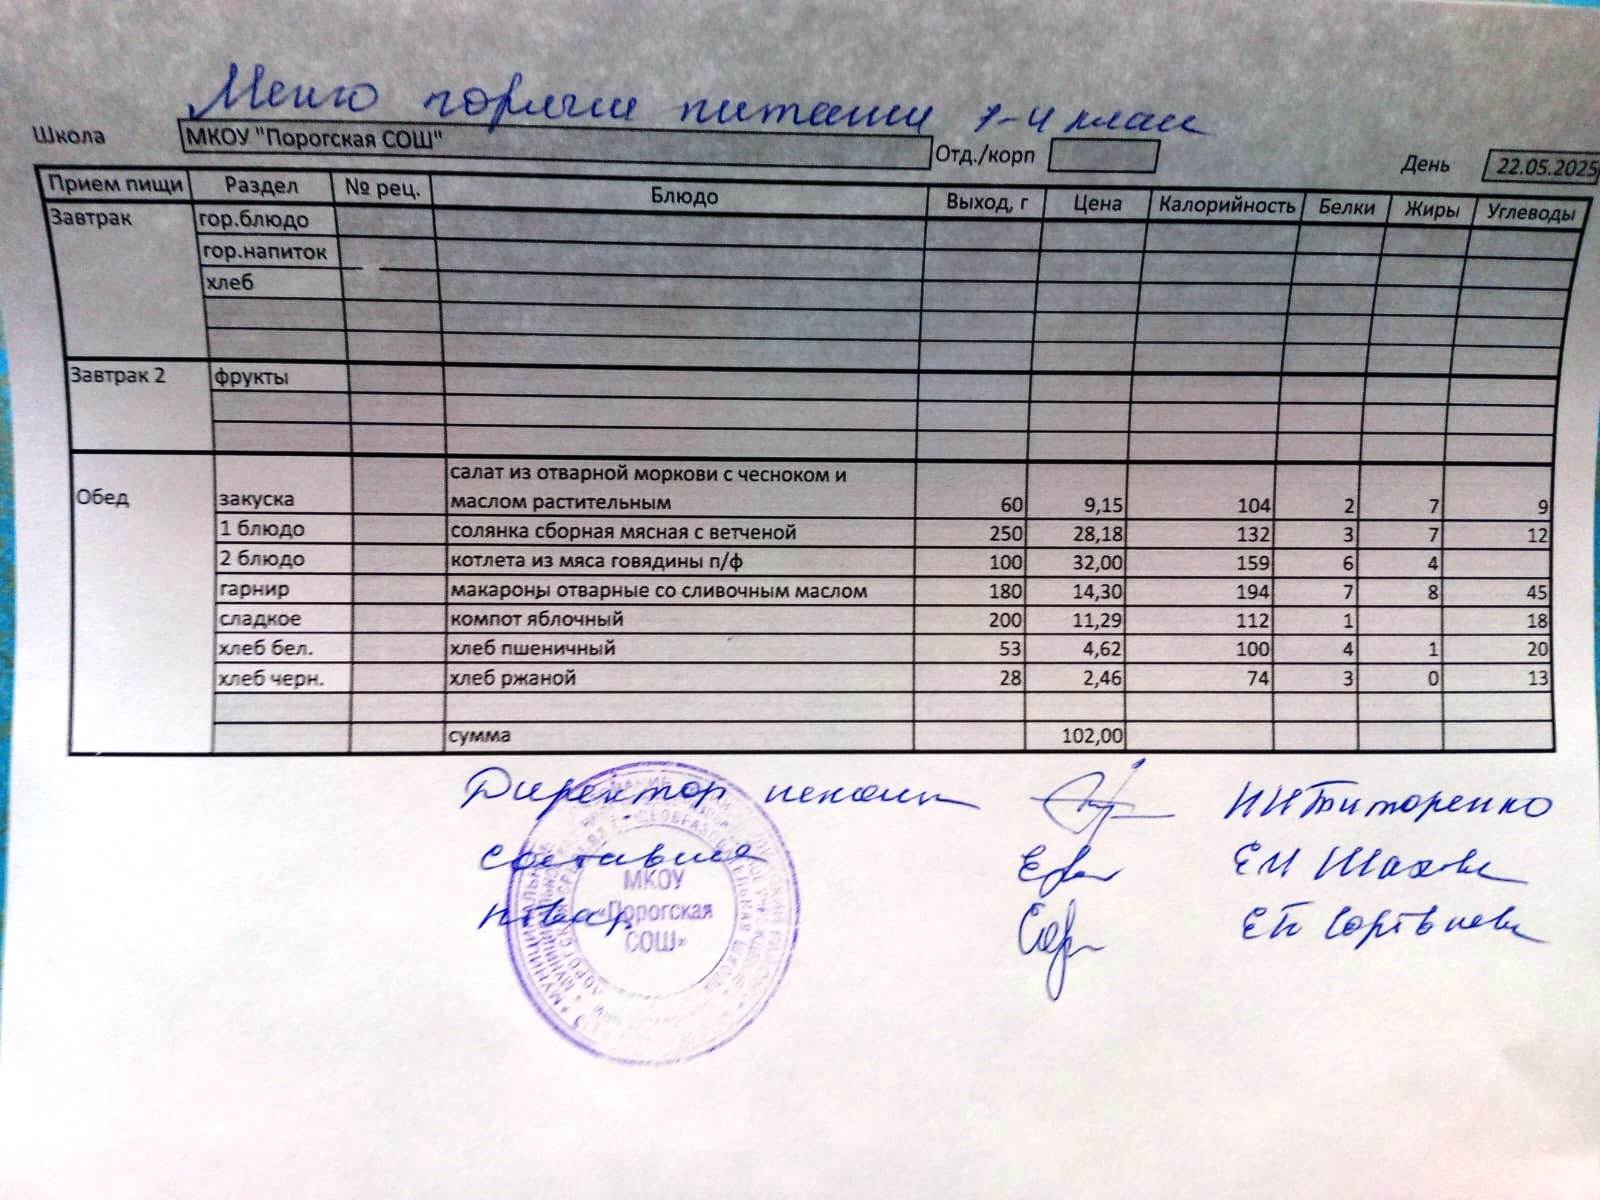 Меню горячего питания 1-4 класс
Школа МКОУ "Порогская СОШ" Отд./корп День 22.05.2025
Прием пищи Раздел № рец. Блюдо Выход, г Цена Калорийность Белки Жиры Углеводы
Завтрак гор.блюдо
гор.напиток
хлеб
Завтрак 2 фрукты
салат из отварной моркови с чесноком и
Обед закуска маслом растительным 60 9,15 104 2 7 9
1 блюдо солянка сборная мясная с ветченой 250 28,18 132 3 7 12
2 блюдо котлета из мяса говядины п/ф 100 32,00 159 6 4
гарнир макароны отварные со сливочным маслом 180 14,30 194 7 8 45
сладкое компот яблочный 200 11,29 112 1 18
хлеб бел. хлеб пшеничный 53 4,62 100 4 1 20
хлеб черн. хлеб ржаной 28 2,46 74 3 0 13
сумма 102,00
Директор школы И И Титоренко
Составила Е И Шахова
повар Е П
МКОУ
«Порогская
СОШ»